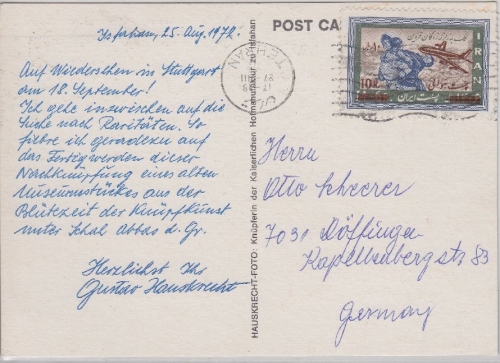 Isfahan, 25. Aug. 1972.
Auf Wiedersehen in Stuttgart
am 18. September!
Ich gehe inzwischen auf die
Suche nach Raritäten. So
fibre ich geradezu auf
das Fertigwerden dieser
Nachknüpfung eines alten
Museumstückes aus der
Blütezeit der Knüpfkunst
unter Schah Abbas d. Gr.
Herzlichst Ihr
Gustav Hauskrecht
HAUSKRECHT-FOTO: Knüpferin der Kaiserlichen Hofmanufaktur zu Isfahan
POST CA
TEHRAN
IRAN
10R
پست ایران
Herrn
Otto Scheerer
7031 Döffingen
Kapellenbergstr 83
Germany